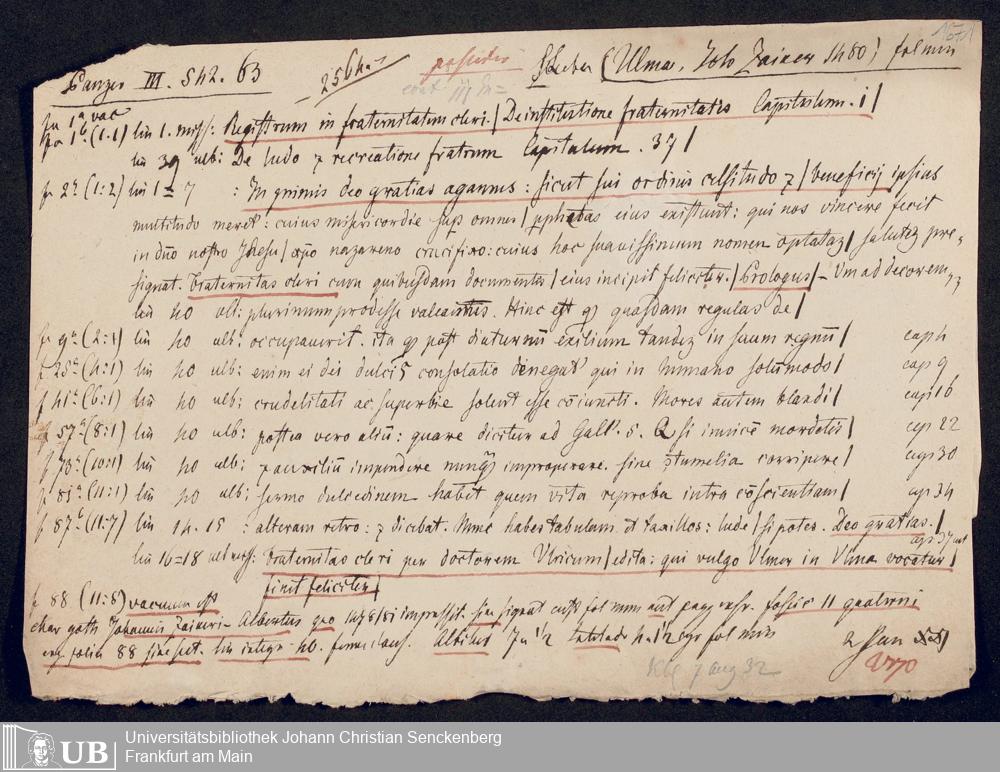 1671
Panzer III. 542. 63
256ka
possidet
(Ulma, Joh Zainer 1480) fol min
fo 1a vac
fo 1b (1.1) lin 1. miss: Registrum in fraternitatem cleri. / De institutione fraternitatis Capitulum. i /
lin 39 ulb: De ludo z recreatione fratrum Capitulum. 37 /
fo 2a (1:2) lin 1=7 : In primis deo gratias agamus: sicut sui ordinis celsitudo z / beneficij ipsius
multitudo meret: cuius misericordie sup omnes / eius existunt: qui nos vincere fecit
in dno nostro Jhesu / xpo nazareno crucifixo: cuius hoc suauissimum nomen optataz / salutez pre-
signat. Fraternitas cleri cum quibusdam documentis / eius incipit feliciter. / Prologus / - Um ad decorem
lin 40 ult: plurimum prodesse valeamus. Hinc est q quasdam regulas de /
f 9a (2:1) lin 40 ulb: occupauerit. ita q post diuturnu exilium tandez in suum regnu / cap 4
f 25a (4:1) lin 40 ulb: enim ei dei dulcis consolatio denegat qui in humano solumodo / cap 9
f 41a (6:1) lin 40 ulb: crudelitati ac superbie solent esse coiuncti. Mores autem blandi / cap 16
f 57a (8:1) lin 40 ulb: postea vero aliu: quare dicitur ad Gall. 5. Q si inuice mordetis / cap 22
f 73a (10:1) lin 40 ulb: z auxiliu impendere nunq improperare. sine tumelia corripere / cap 30
f 81a (11:1) lin 40 ulb: sermo dulcedinem habet quem vita reproba intra coscientiam / cap 34
f 87b (11:7) lin 14. 15 : alteram retro: z dicebat. Nunc habes tabulam et taxillos: lude / si potes. Deo gratias. /
cap 37 ult
lin 16=18 ult: Fraternitas cleri per doctorem Vlricum / edita: qui vulgo Vlmer in Vlma vocatur /
finit feliciter /
f 88 (11:8) vacuum est
char goth Johannis Zaineri - Albertus 1478/81 impressit. sine signat cust fol num aut pagg insr. foliis 11 quaterni
folia 88 sine lin integr 40. Altitudo 7u 1/2 latitudo 4u 1/2 fol min
Kbg 7 aug 32
UB Universitätsbibliothek Johann Christian Senckenberg
Frankfurt am Main